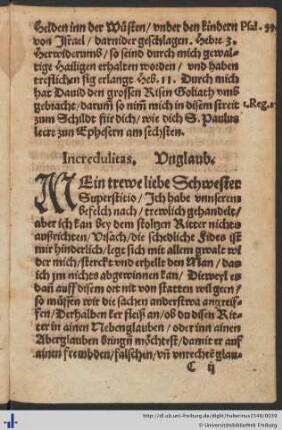 Helden inn der Wůsten / vnder den kindern Psal. 99.
von Israel / darnider geschlagen. Hebre. 3.
Herwiderumb / so seind durch mich gewal-
tige Heiligen erhalten worden / vnd haben
trefflichen sig erlangt Heb. 11. Durch mich
hat Dauid den grossen Risen Goliath vmb
gebracht / darum̃ so nim̃ mich in disem streit 1. Reg. 17
zum Schildt für dich / wie dich S. Paulus
leert zun Ephesern am sechsten.
Incredulitas. Vnglaub.
MEin trewe liebe Schwester
Superstitio / Ich habe vnnserem
befelch nach / trewlich gehandelt /
aber ich kan bey dem stoltzen Ritter nichts
außrichten / Vrsach / die schedliche Fides ist
mir hinderlich / legt sich mit allem gwalt wi
der mich / sterckt vnd erhellt den Man / das
ich jm nichts abgewinnen kan / Dieweyl es
dañ auff disem ort nit von statten wil geen /
so müssen wir die sachen anderstwa angreif-
fen / Derhalben ker fleiß an / ob du disen Rit-
ter in ainen Nebenglauben / oder inn ainen
Aberglauben bringñ möchtest / damit er auf
ainen frembden / falschen / vñ vnrechtẽ glau-
C ij
http://dl.ub.uni-freiburg.de/diglit/huberinus1546/0039
© Universitätsbibliothek Freiburg